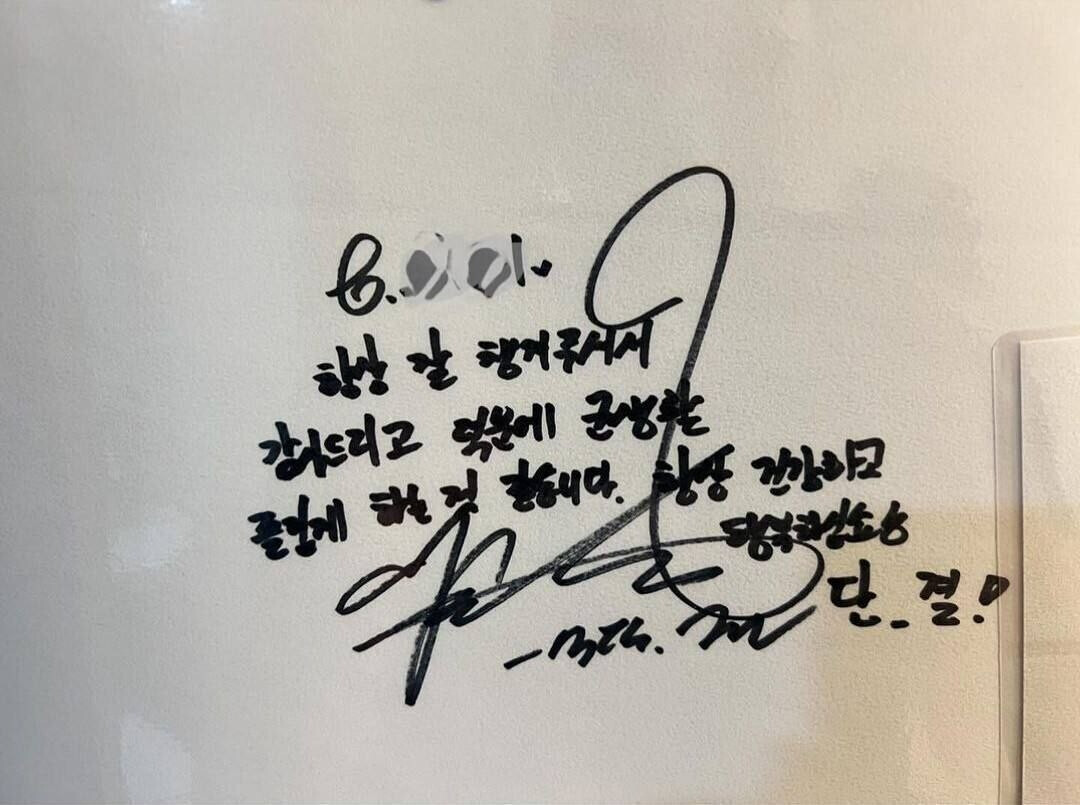 항상 잘 챙겨주셔서
감사드리고 덕분에 군생활
즐겁게 하는 것 같습니다. 항상 건강하고
행복하십쇼
단.결!